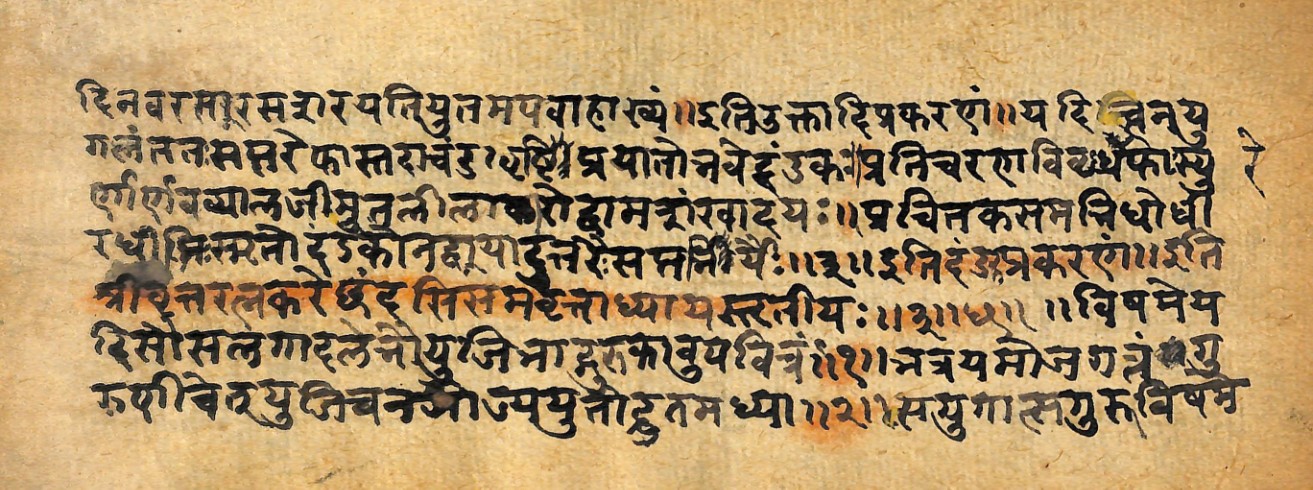 दिनवरसारसनारयतियुतमपवाहाख्यं ॥ इतिउक्तादिप्रकरणं ॥ यदि नयु
गलं ततः सप्तरेफास्तदाचंड वृष्टि प्रयातोभवेद्दंडकः प्रतिचरण विवृद्धरेफाःस्यु
र्णार्णवव्यालजीमूतलीलाकरोद्दामशंखादयः ॥ प्रचितकसमभिधोधी
रधीभिःस्मृतोदंडकोनद्वयादुत्तरैःसप्तभिर्यैः ॥३॥ इतिदंडकप्रकरणं ॥ इति
श्रीवृत्तरत्नाकरेछंदसिसमवृत्ताध्यायस्तृतीयः ॥३॥ ॥ विषमेय
दिसौसलगादलेभौयुजिभाद्गुरुकावुपचित्रं ॥१॥ भत्रयमोजगतं गु
रुणीचेत्युजिचनजौज्ययुतौद्रुतमध्या ॥२॥ सयुगात्सगुरूविषमे